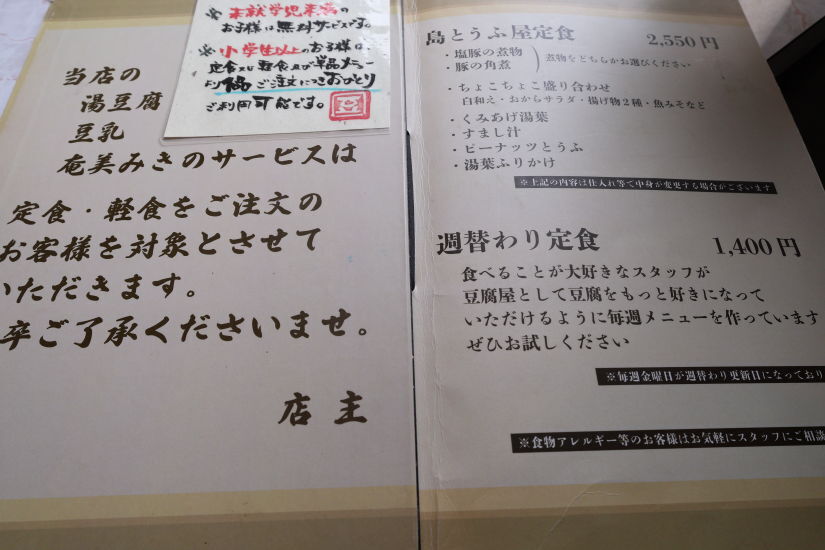 ※ 未就学児未満の
お子様は無料サービスです。
※ 小学生以上のお子様は、
定食又は軽食及び単品メニュー
より1品ご注文につきおひとり
ご利用可能です。
当店の
湯豆腐
豆乳
奄美みきのサービスは
定食・軽食をご注文の
お客様を対象とさせて
いただきます。
卒ご了承くださいませ。
店主
島とうふ屋定食 2,550円
・塩豚の煮物
・豚の角煮
煮物をどちらかお選びください
・ちょこちょこ盛り合わせ
白和え・おからサラダ・揚げ物2種・魚みそなど
・くみあげ湯葉
・すまし汁
・ピーナッツとうふ
・湯葉ふりかけ
※上記の内容は仕入れ等で中身が変更する場合がございます
週替わり定食 1,400円
食べることが大好きなスタッフが
豆腐屋として豆腐をもっと好きになって
いただけるように毎週メニューを作っています
ぜひお試しください
※毎週金曜日が週替わり更新日になっており
※食物アレルギー等のお客様はお気軽にスタッフにご相談